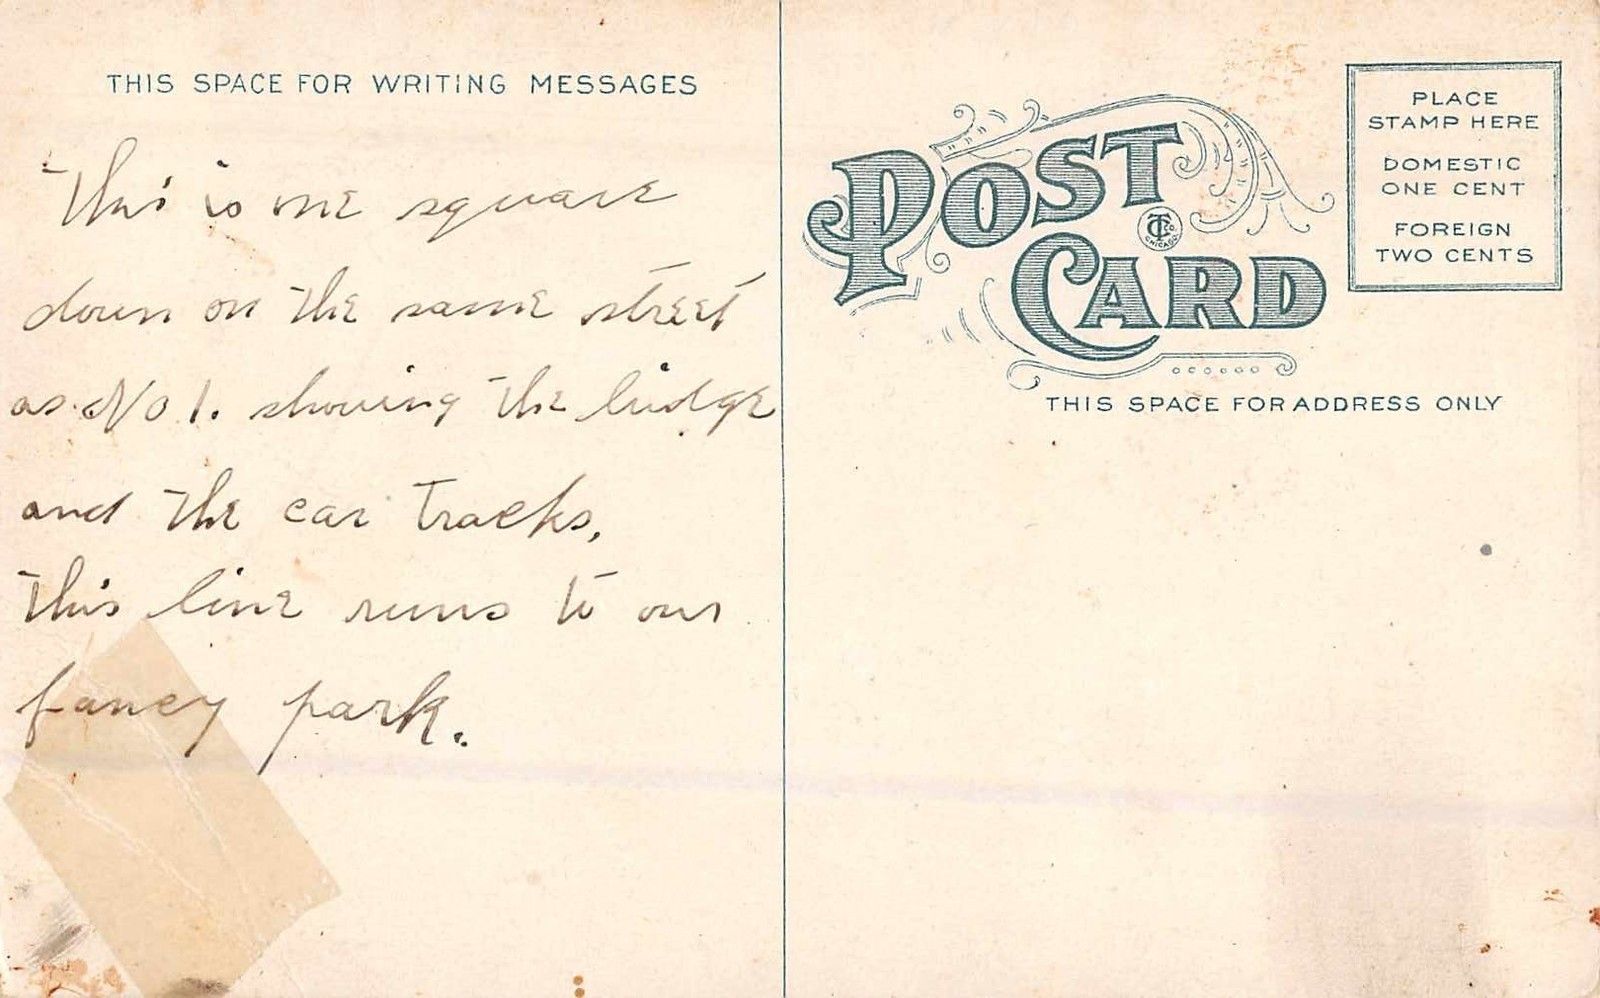 THIS SPACE FOR WRITING MESSAGES
This is one square
down on the same street
as No 1. showing the bridge
and the car tracks,
This line runs to our
fancy park.
POST CARD
CTCo
CHICAGO
PLACE
STAMP HERE
DOMESTIC
ONE CENT
FOREIGN
TWO CENTS
THIS SPACE FOR ADDRESS ONLY